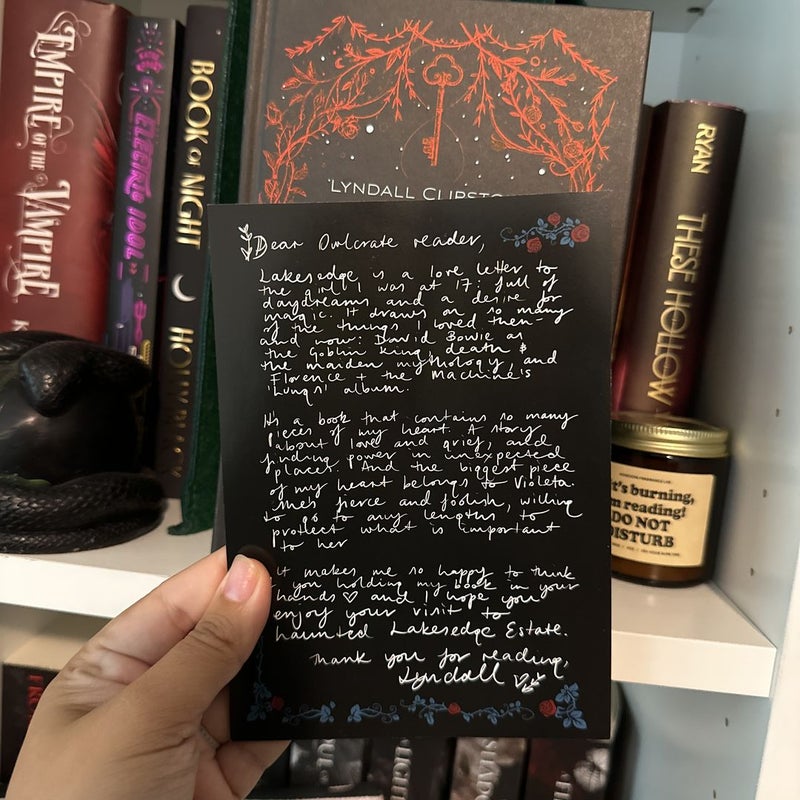 EMPIRE OF THE VAMPIRE
K
ELECTRIC IDOL
BOOK OF NIGHT
HOLLY BLACK
LYNDALL CLIPSTO
RYAN
THESE HOLLOW
Dear Owlcrate reader,
Lakesedge is a love letter to
the girl I was at 17: full of
daydreams and a desire for
magic. It draws on so many
of the things I loved then-
and now: David Bowie as
the Goblin King, death &
the maiden mythology, and
Florence + the Machine's
'Lungs' album.
It's a book that contains so many
pieces of my heart. A story
about love and grief, and
finding power in unexpected
places. And the biggest piece
of my heart belongs to Violeta.
She's fierce and foolish, willing
to go to any lengths to
protect what is important
to her
It makes me so happy to think
you holding my book in your
hands ♡ and I hope you
enjoy your visit to
haunted Lakesedge Estate.
Thank you for reading,
Lyndall
t's burning,
m reading!
DO NOT
ISTURB